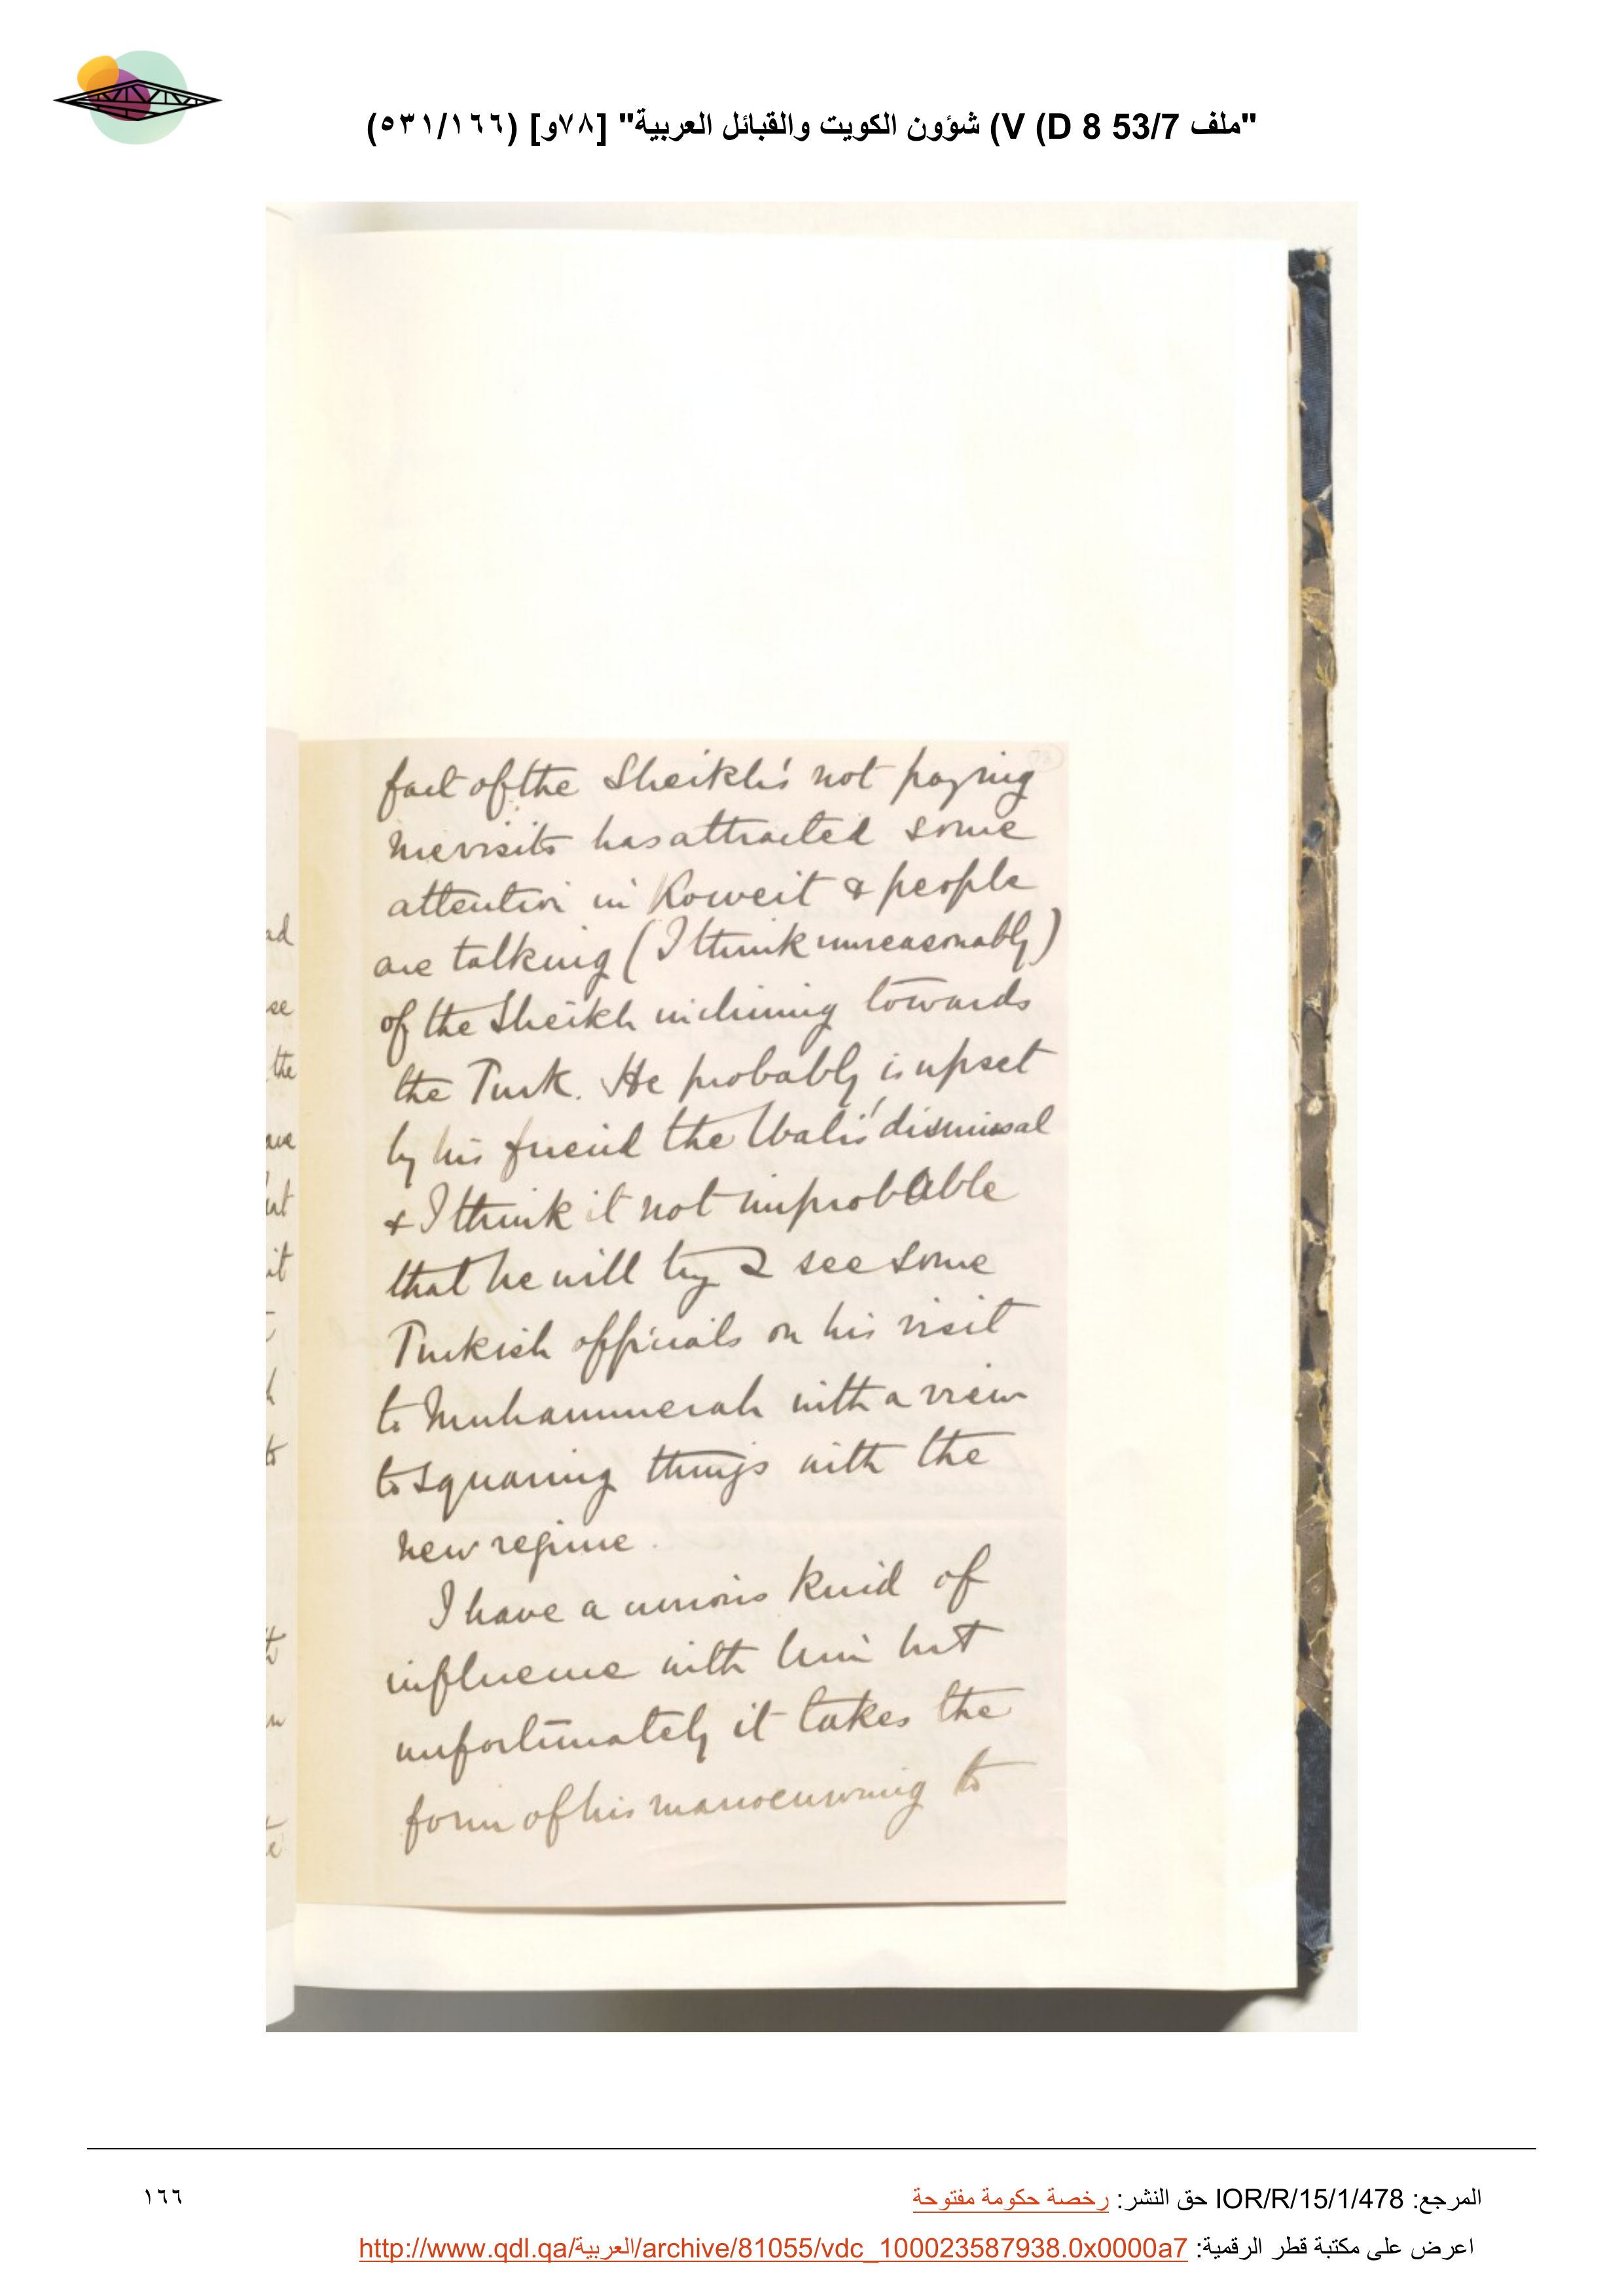 "ملف 53/7 D 8) V) شؤون الكويت والقبائل العربية" [٧٨و] (٥٣١/١٦٦)
fact of the Sheikh's not paying
me visits has attracted some
attention in Koweit & people
are talking (I think unreasonably)
of the Sheikh inclining towards
the Turk. He probably is upset
by his friend the Wali's dismissal
& I think it not improbable
that he will try & see some
Turkish officials on his visit
to Muhammerah with a view
to squaring things with the
new regime.
I have a curious kind of
influence with him but
unfortunately it takes the
form of his manoeuvring to
ad
se
the
ave
ut
it
h
to
te
المرجع: IOR/R/15/1/478 حق النشر: رخصة حكومة مفتوحة
١٦٦
اعرض على مكتبة قطر الرقمية: http://www.qdl.qa/العربية/archive/81055/vdc_100023587938.0x0000a7